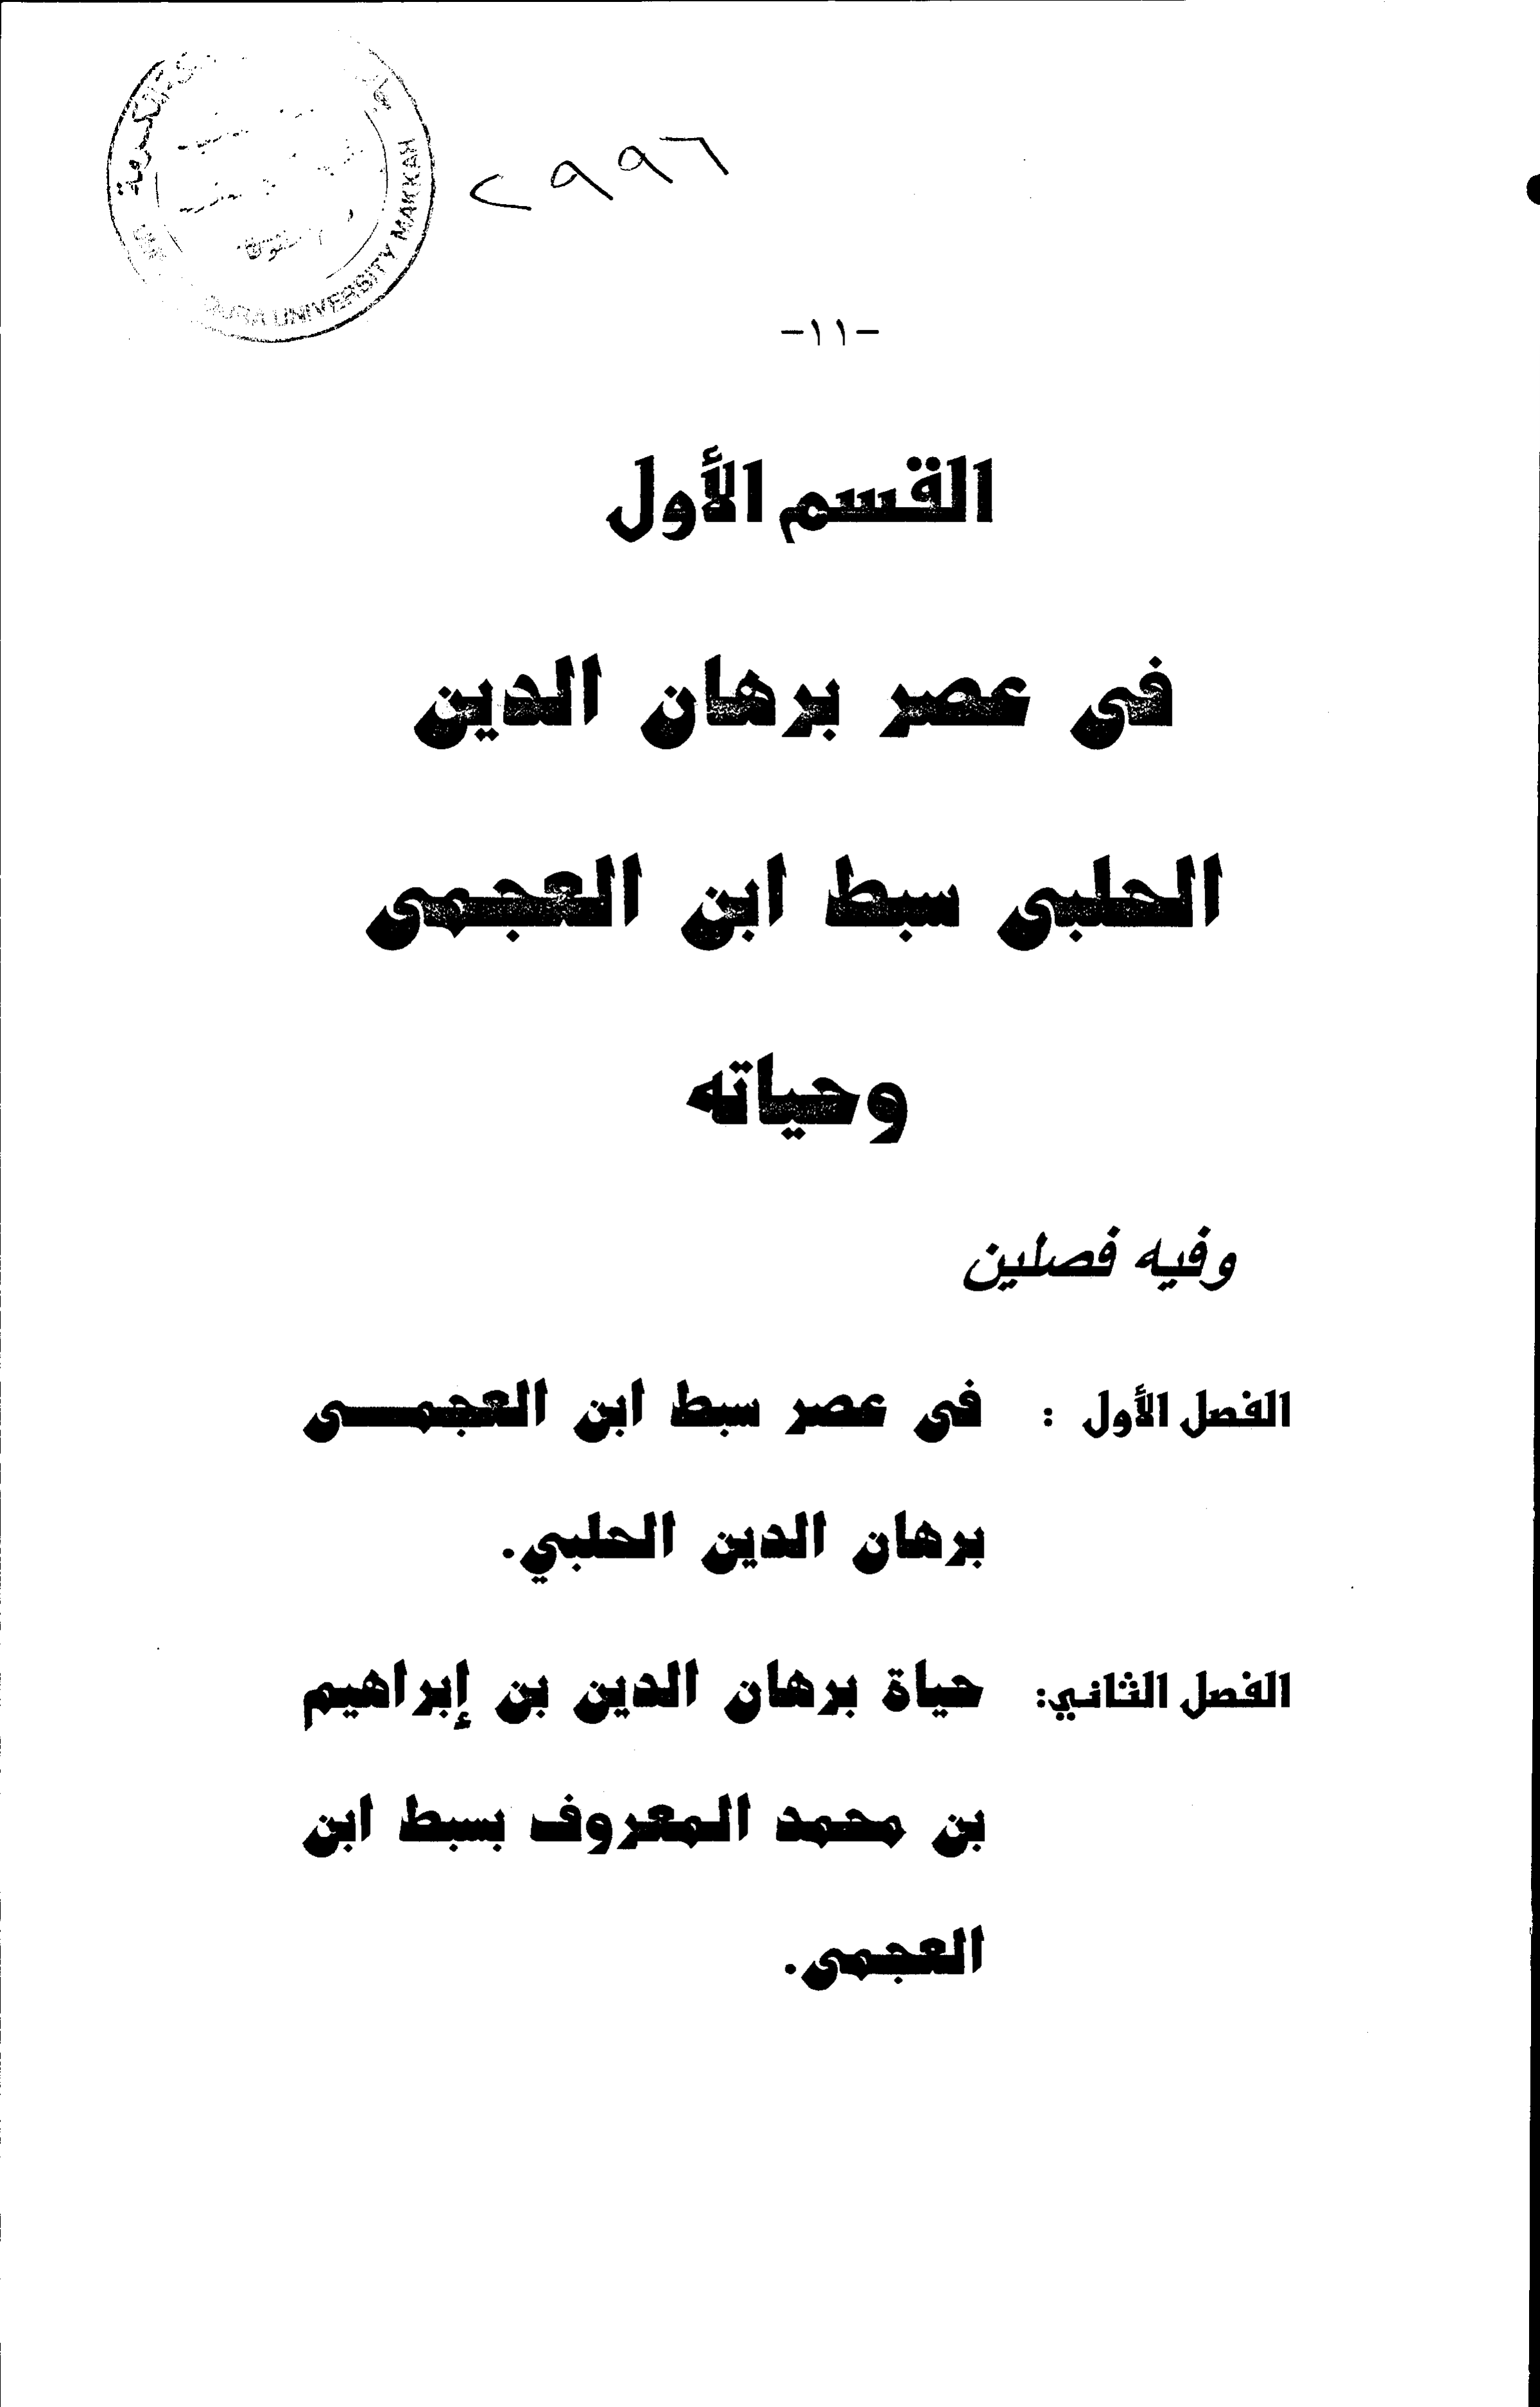 المكرمة
QURA UNIVERSITY MAKKAH
٢٩٩٦
-١١-
القسم الأول
فى عصر برهان الدين
الحلبى سبط ابن العجمى
وحياته
وفيه فصلين
الفصل الأول : فى عصر سبط ابن العجمـــى
برهان الدين الحلبي.
الفصل الثاني: حياة برهان الدين بن إبراهيم
بن محمد المعروف بسبط ابن
العجمى.